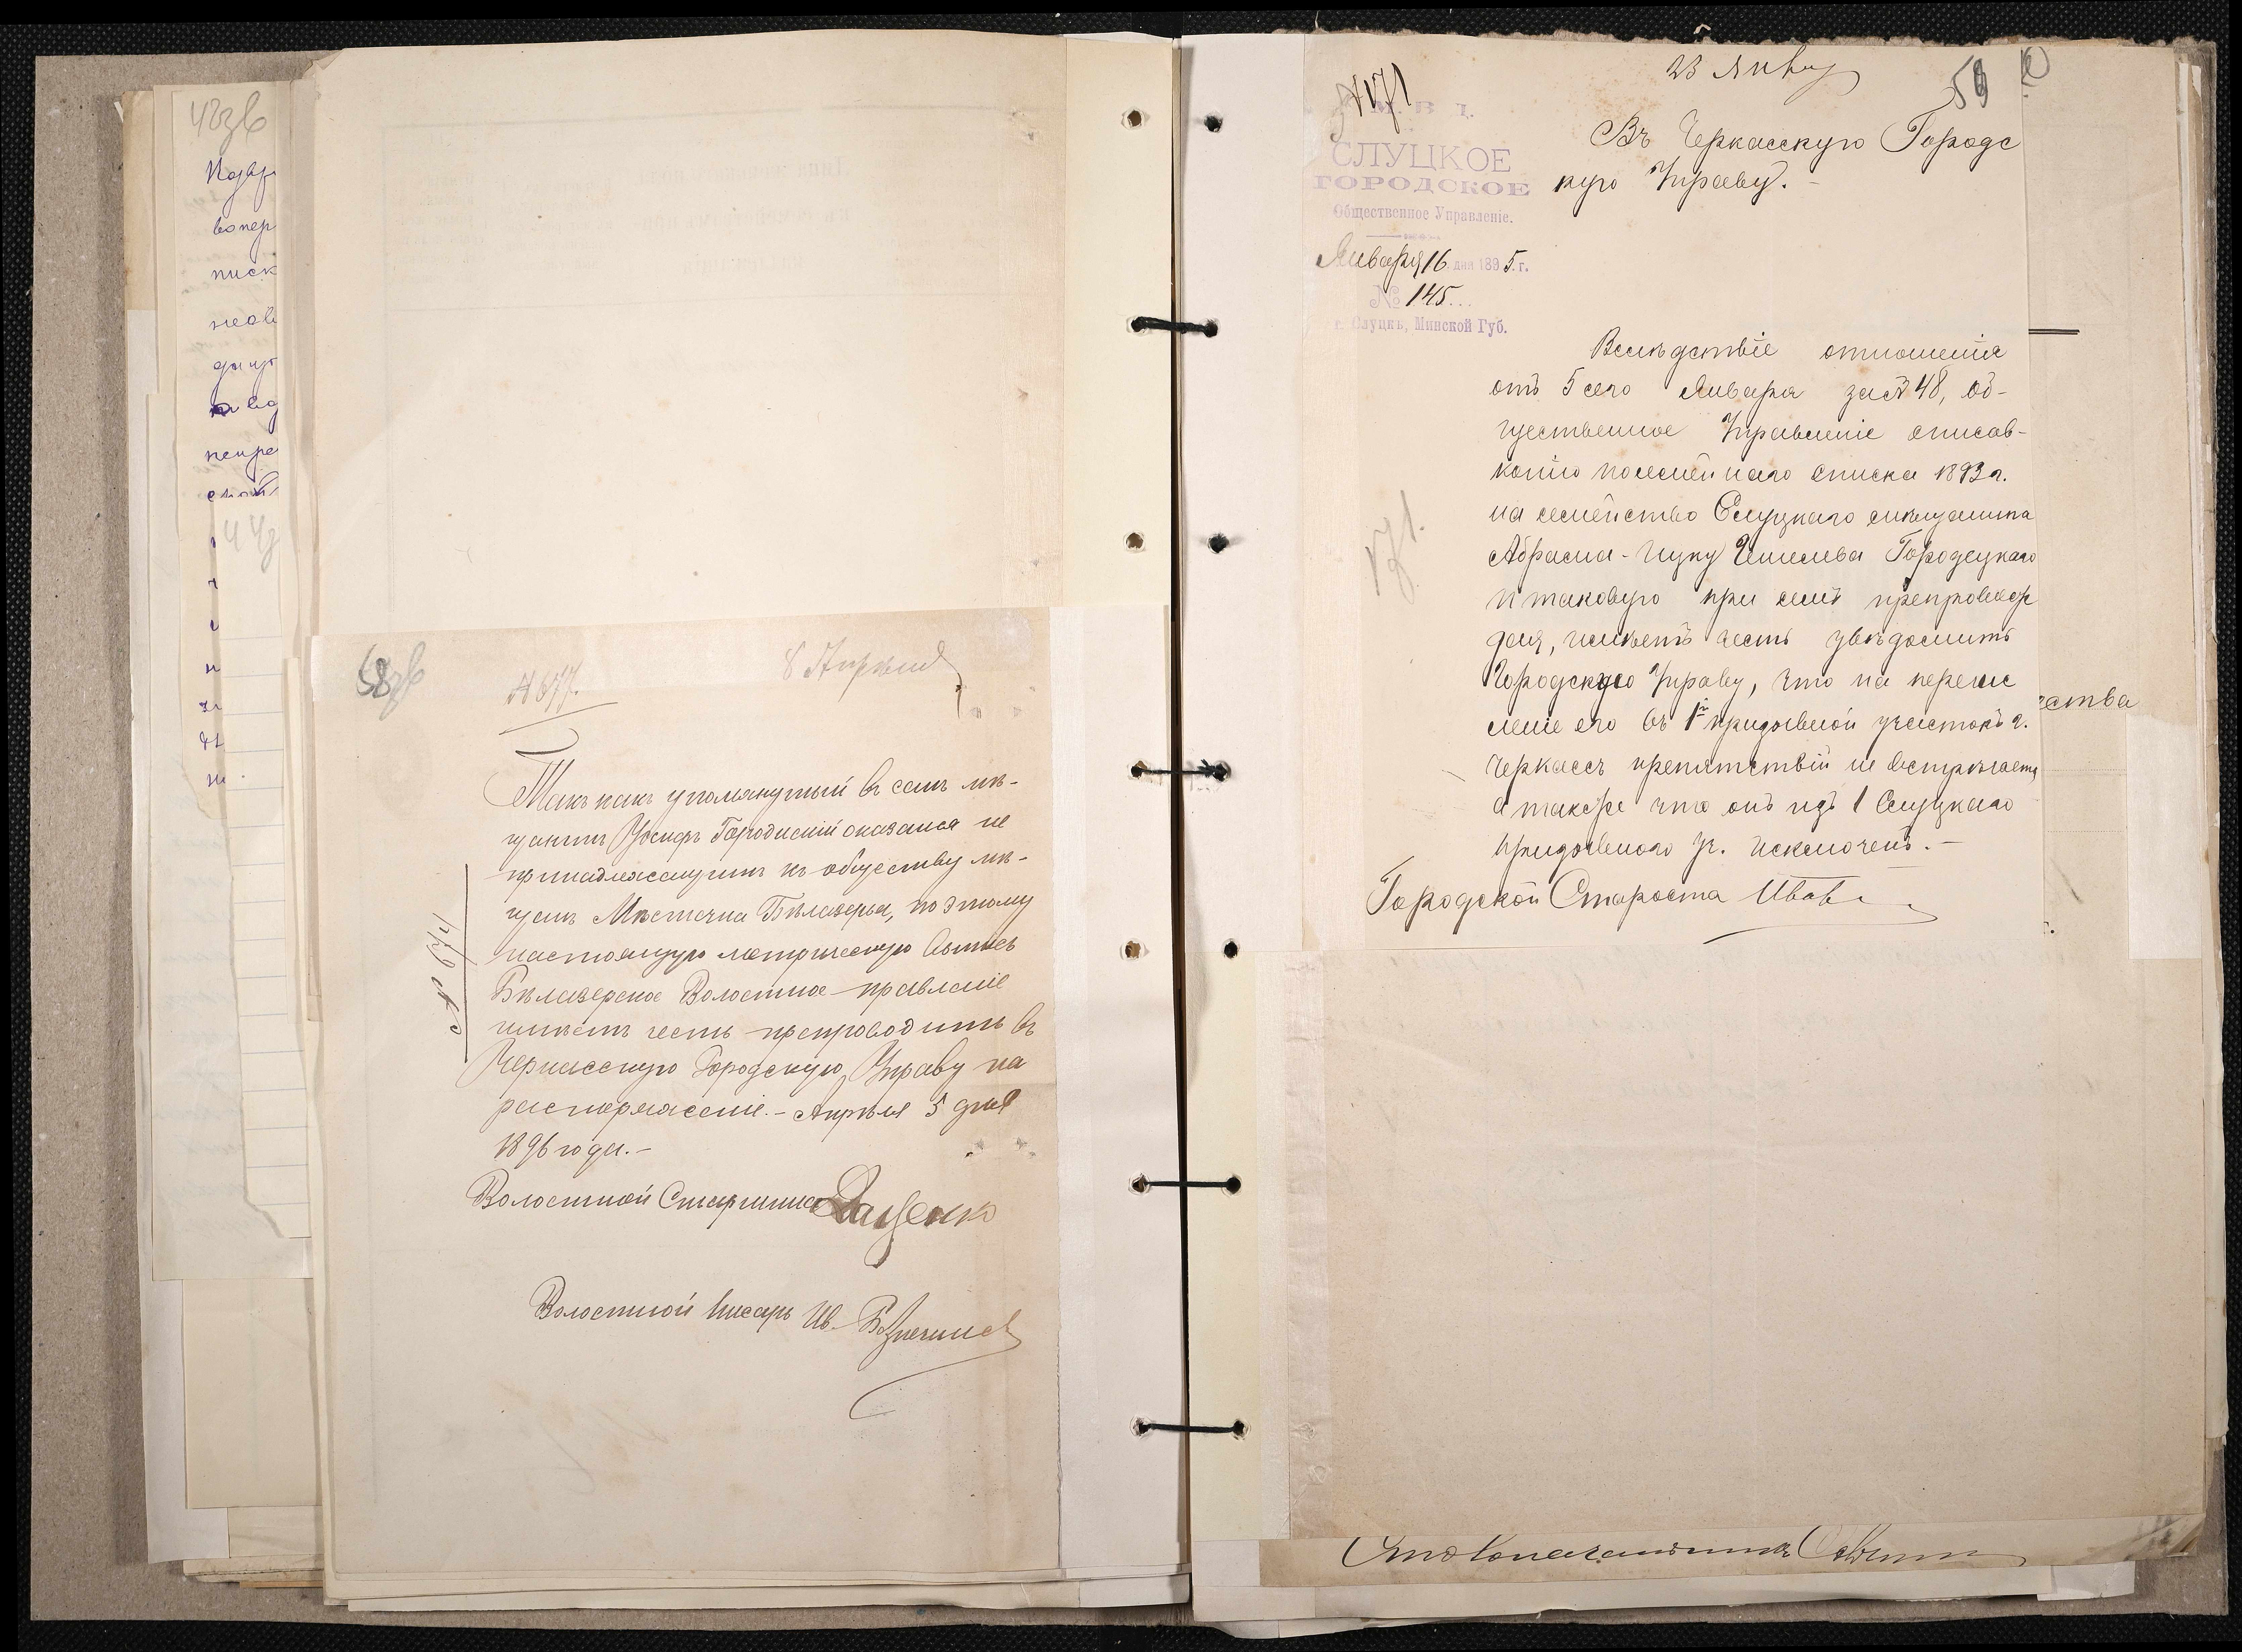 58зв
№ 677.
8 Апрѣля
Такъ какъ упомянутый въ семъ мѣ-
щанинъ Іосифъ Городискій оказался не
принадлежащимъ къ обществу мѣ-
щанъ Мѣстечка Бѣлозерья, поэтому
настоящую метрическую выпись
Бѣлозерское Волостное правленіе
имѣетъ честь препроводить въ
Черкасскую Городскую Управу на
распоряженіе. - Апрѣля 5 дня
1896 года. -
№ 677
Волостной Старшина Даценко
Волостной Писарь Ив.
42зв
44з
23 Январ
59
№ 171
М. В. Д.
СЛУЦКОЕ
ГОРОДСКОЕ
Общественное Управленіе.
Января 16 дня 1895 г.
№ 145
г. Слуцкъ, Минской Губ.
Въ Черкасскую Городс
кую Управу. -
171.
Вслѣдствіе отношенія
отъ 5 сего Января за № 48, об-
щественное Управленіе списав-
копію посемейнаго списка 1893 г.
на семейство Слуцкаго мѣщанина
Абрама-Ицку Городецкаго
и таковую при семъ препровож
дая, имѣетъ честь увѣдомить
Городскую Управу, что на перечис
леніе его въ 1й призывной участокъ г.
Черкассъ препятствій не встрѣчается
а также что онъ изъ 1 Слуцкаго
призывного уч. исключенъ. -
Городской Староста
ества
Столоначальникъ